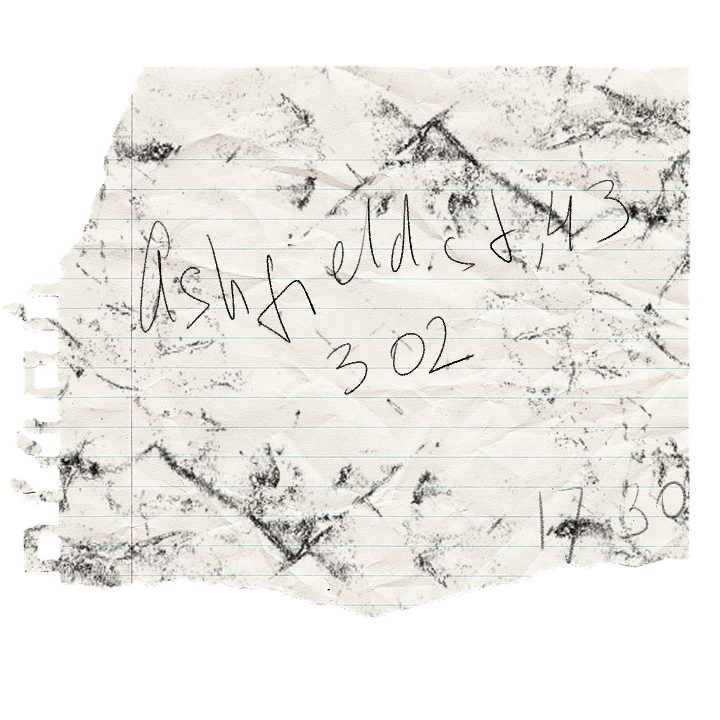 Ashfield st, 43
302
17 30